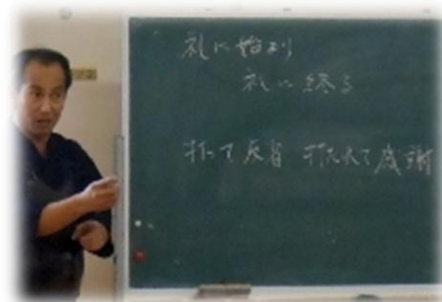 礼に始り
礼に終る
打って反省 打たれて感謝